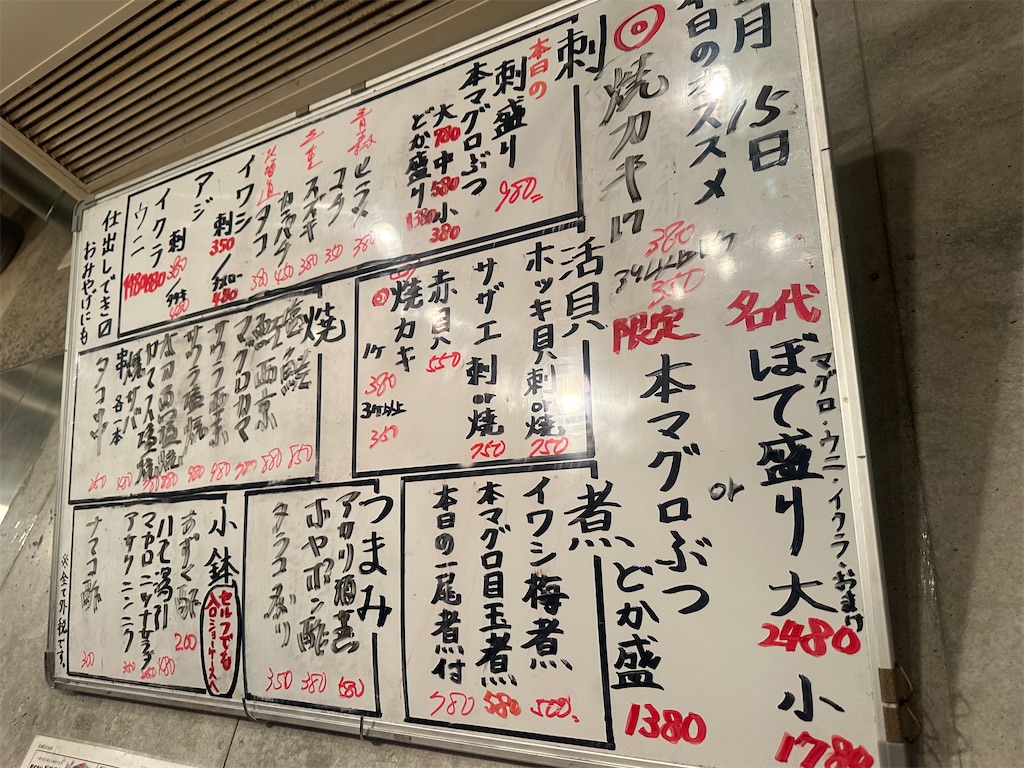 月 15日
本日のオススメ
◎焼カキ 1ケ 380
3ケ以上 1ケ 350
名代 ぼて盛り 大 2480 小 1780
マグロ・ウニ・イクラ・おまけ
限定 本マグロぶつ or どか盛 1380
刺
本日の
刺盛り 980
本マグロぶつ
大780 中580 小380
どか盛り 1380
青森 ヒラメ 380
コチ 350
三重 スズキ 380
カンパチ 450
北海道 タコ 380
イワシ 刺350/
アジ 刺380/タタキ
イクラ
ウニ
仕出しできます
おみやげにも
活貝
ホッキ貝 刺or焼 750
サザエ 刺or焼 750
赤貝 550
◎焼カキ
1ケ 380
3ケ以上 350
焼
塩鯖 850
西京 880
マグロカマ
サワラ西京 980
サワラ塩焼
串各一本
タコ串
煮
イワシ梅煮 500
本マグロ目玉煮 580
本日の一尾煮付 980
つまみ
アカリ酒盗 680
ホヤポン酢 380
350
小鉢
セルフでも
入口ショーケースへ
もずく酢 200
ハモ湯引
マカロニツナサラダ
アサリニンニク 350
ナマコ酢 300
※全て外税です。